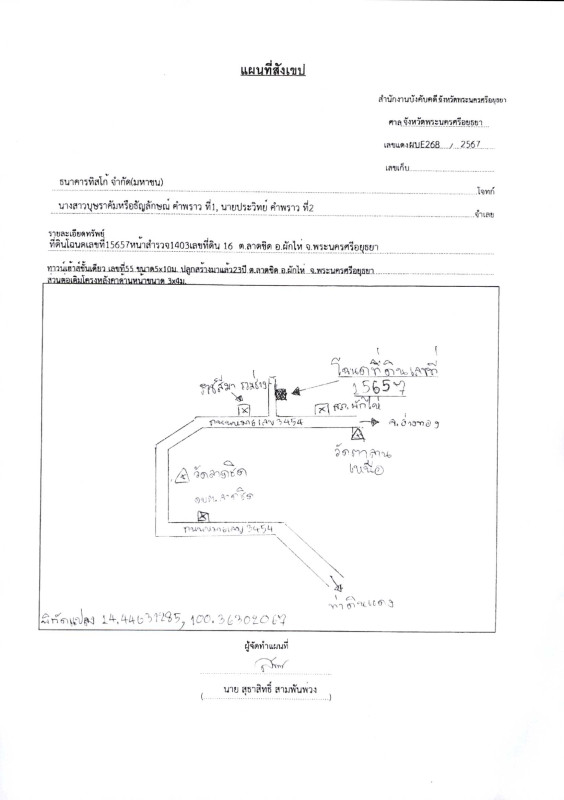 แผนที่สังเขป
สำนักงานบังคับคดี จังหวัดพระนครศรีอยุธยา
ศาล จังหวัดพระนครศรีอยุธยา
เลขแดง ผบE268 / 2567
เลขเก็บ
ธนาคารทิสโก้ จำกัด(มหาชน) โจทก์
นางสาวบุษราคัมหรือธัญลักษณ์ คำพราว ที่1, นายประวิทย์ คำพราว ที่2 จำเลย
รายละเอียดทรัพย์
ที่ดินโฉนดเลขที่15657หน้าสำรวจ1403เลขที่ดิน 16 ต.ลาดชิด อ.ผักไห่ จ.พระนครศรีอยุธยา
ทาวน์เฮ้าส์ชั้นเดียว เลขที่55 ขนาด5x10ม. ปลูกสร้างมาแล้ว23ปี ต.ลาดชิด อ.ผักไห่ จ.พระนครศรีอยุธยา
ส่วนต่อเติมโครงหลังคาด้านหน้าขนาด 3x4ม.
โฉนดที่ดินเลขที่
15657
สภ.ผักไห่
ถนนหมายเลข 3454
จ.อ่างทอง
วัดตาลาน
เหนือ
วัดลาดชิด
อบต.ลาดชิด
ถนนหมายเลข 3454
ท่าดินแดง
พิกัดแปลง 14.44631285, 100.36302067
ผู้จัดทำแผนที่
นาย สุธาสิทธิ์ สามพันพ่วง